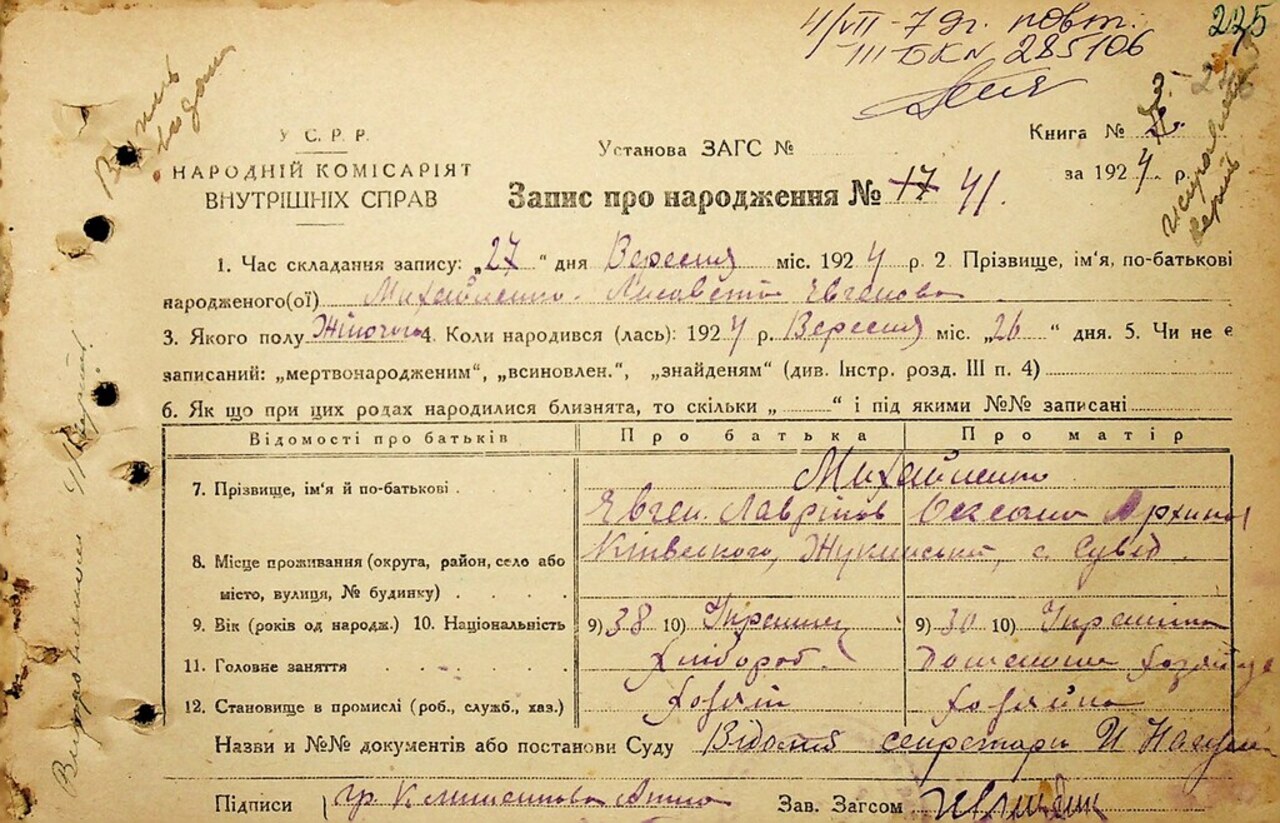 4/VII-79г. повт.
III БК № 285106
225
У. С. Р. Р.
НАРОДНІЙ КОМІСАРІЯТ
ВНУТРІШНІХ СПРАВ
Установа ЗАГС №
Книга №
за 1924 р.
Запис про народження № 17 41.
1. Час складання запису: „27“ дня Вересня міс. 1924 р. 2. Прізвище, ім'я, по-батькові
народженого(ої) Михайленко Лисавета Евгенова
3. Якого полу Жіночого 4. Коли народився (лась): 1924 р. Вересня міс. „26“ дня. 5. Чи не є
записаний: „мертвонародженим“, „всиновлен.“, „знайденям“ (див. Інстр. розд. III п. 4)
6. Як що при цих родах народилися близнята, то скільки „ “ і під якими №№ записані
Відомості про батьків Про батька Про матір
Михайленко
7. Прізвище, ім'я й по-батькові
Евген Лаврінов Оксана
8. Місце проживання (округа, район, село або
с. Сувид
місто, вулиця, № будинку)
9. Вік (років од народж.) 10. Національність 9) 38 10) Украинец 9) 30 10) Украінка
11. Головне заняття Хлібороб.
12. Становище в промислі (роб., служб., хаз.) Хозяін Хозяйка
Назви и №№ документів або постанови Суду секретаря
Підписи гр. Зав. Загсом